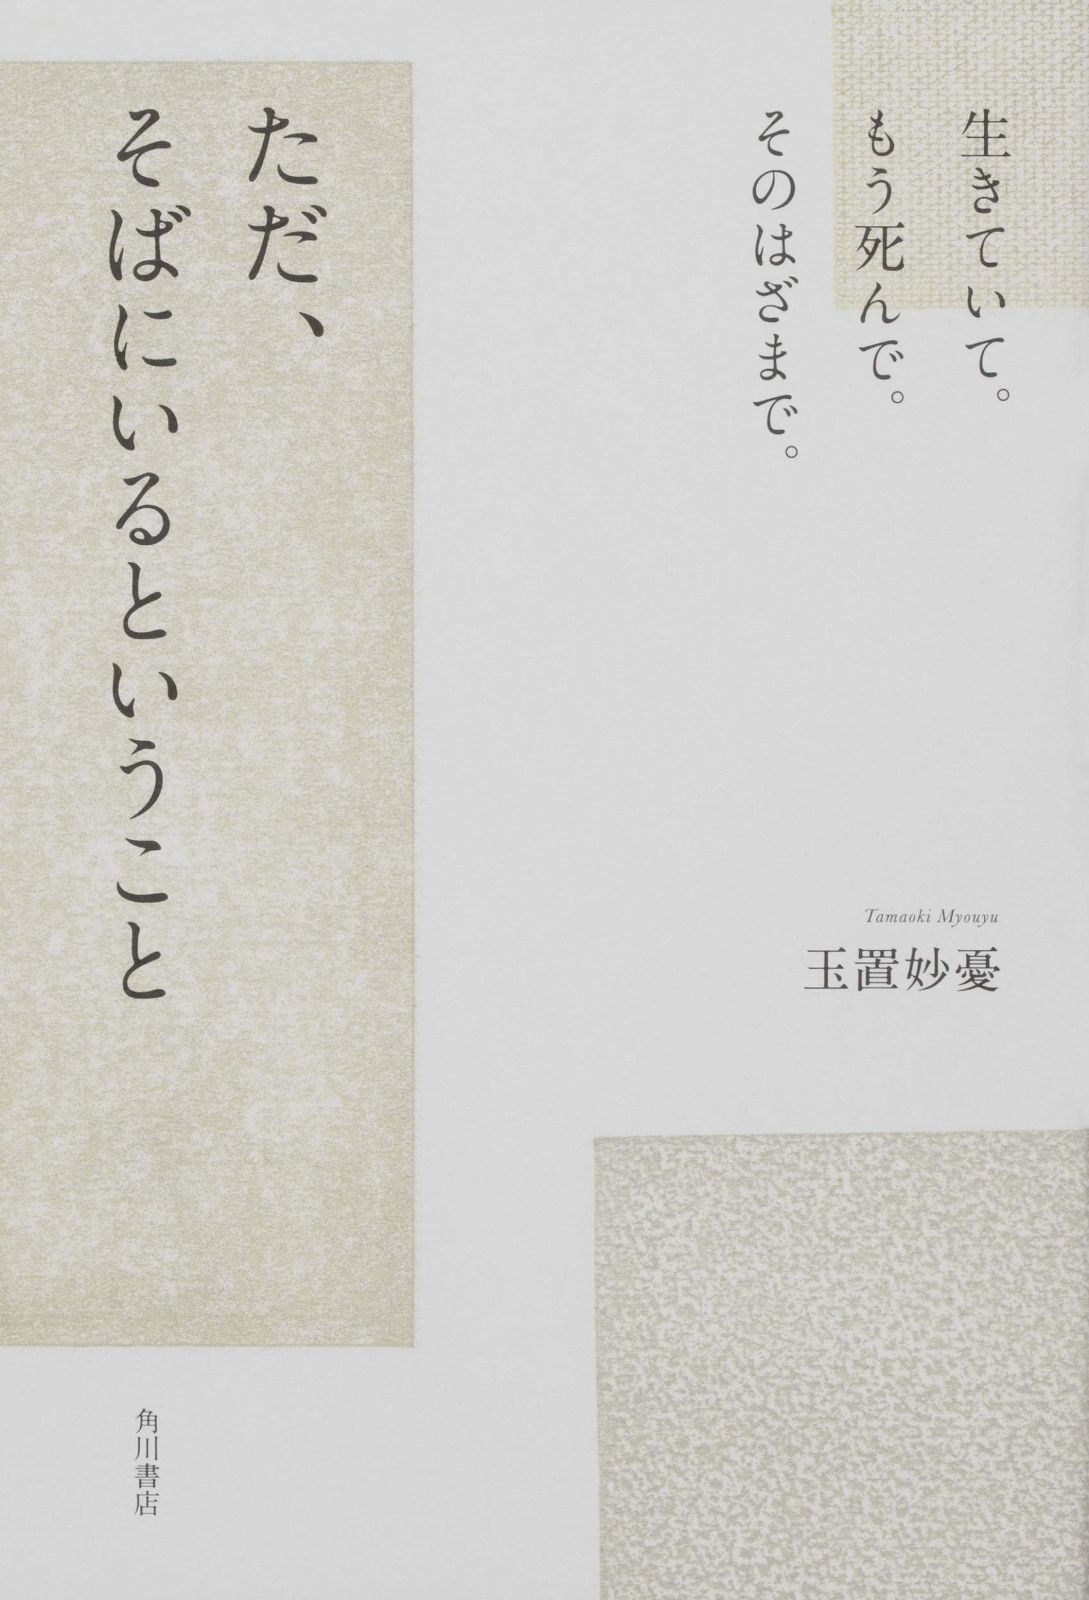 生きていて。
もう死んで。
そのはざまで。
ただ、
そばにいるということ
Tamaoki Myouyu
玉置妙憂
角川書店